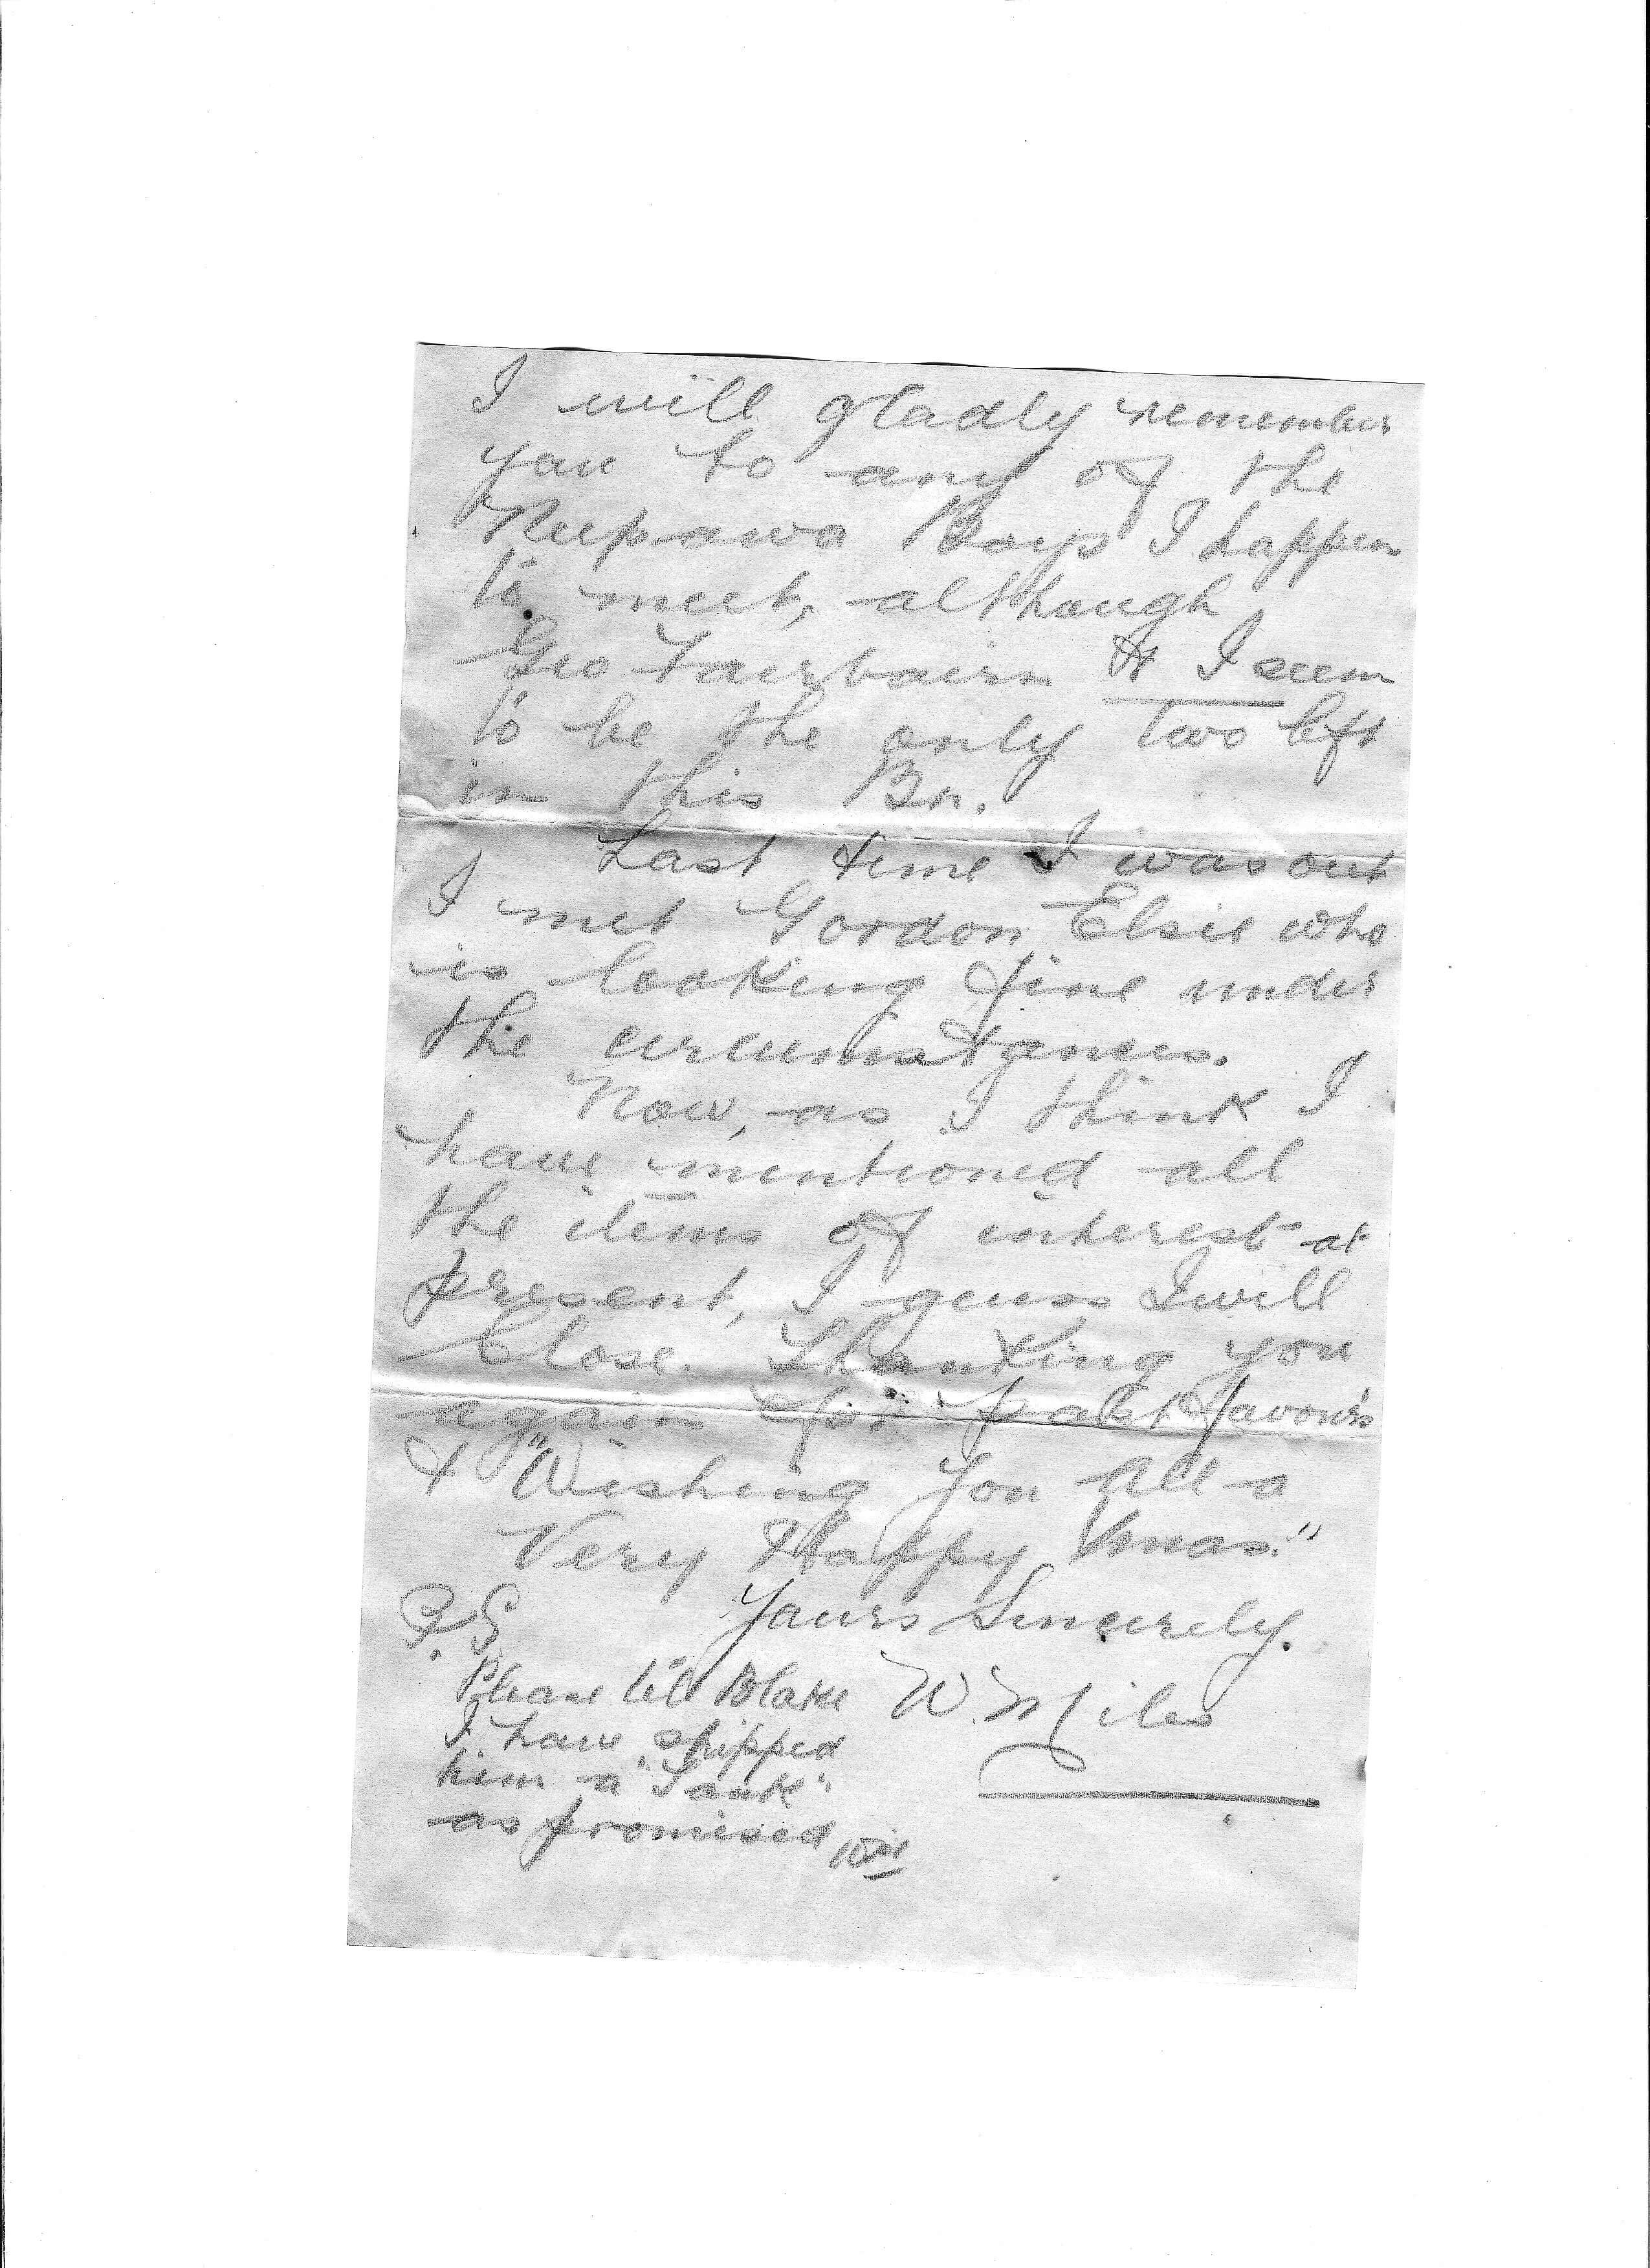 I will gladly remember
you to any of the
Neepawa Boys I happen
to meet, although
Geo Fairbairn & I seem
to be the only two left
in this Bn.
Last time I was out
I met Gordon Elsie who
is looking fine under
the circumstances.
Now, as I think I
have mentioned all
the items of interest at
present, I guess I will
close. Thanking you
again for past favours
& "Wishing You All a
Very Happy Xmas."
Yours Sincerely.
W. Miles
P.S.
Please tell Blake
I have shipped
him a "Tank"
as promised